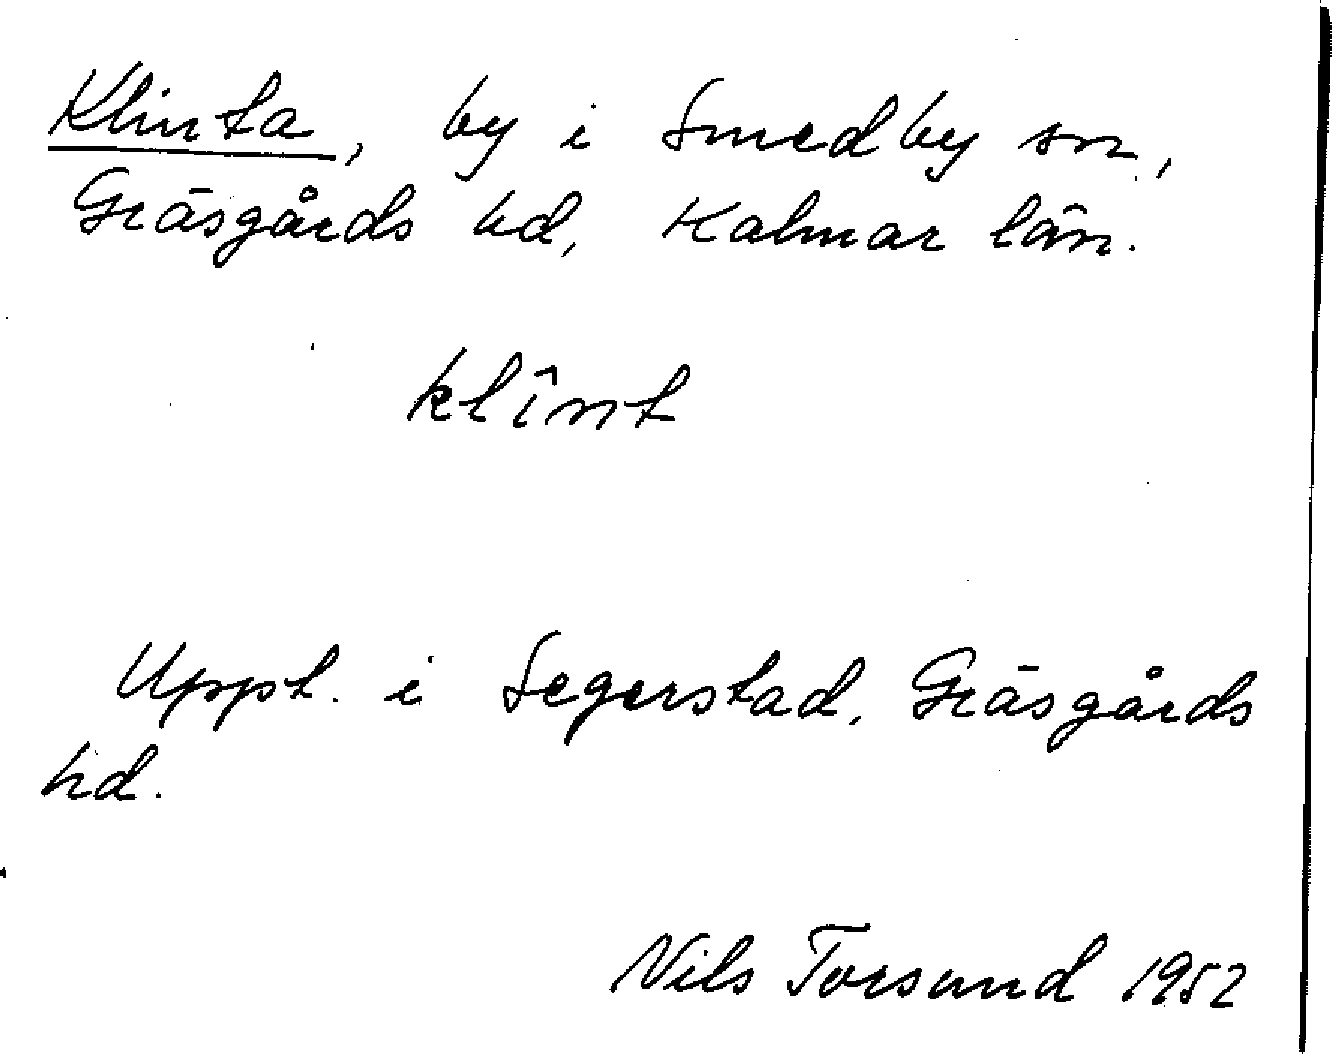 Klinta, by i Smedby sn,
Gräsgårds hd, Kalmar län.
klînt
Uppt. i Segerstad, Gräsgårds
hd.
Nils Torsund 1952